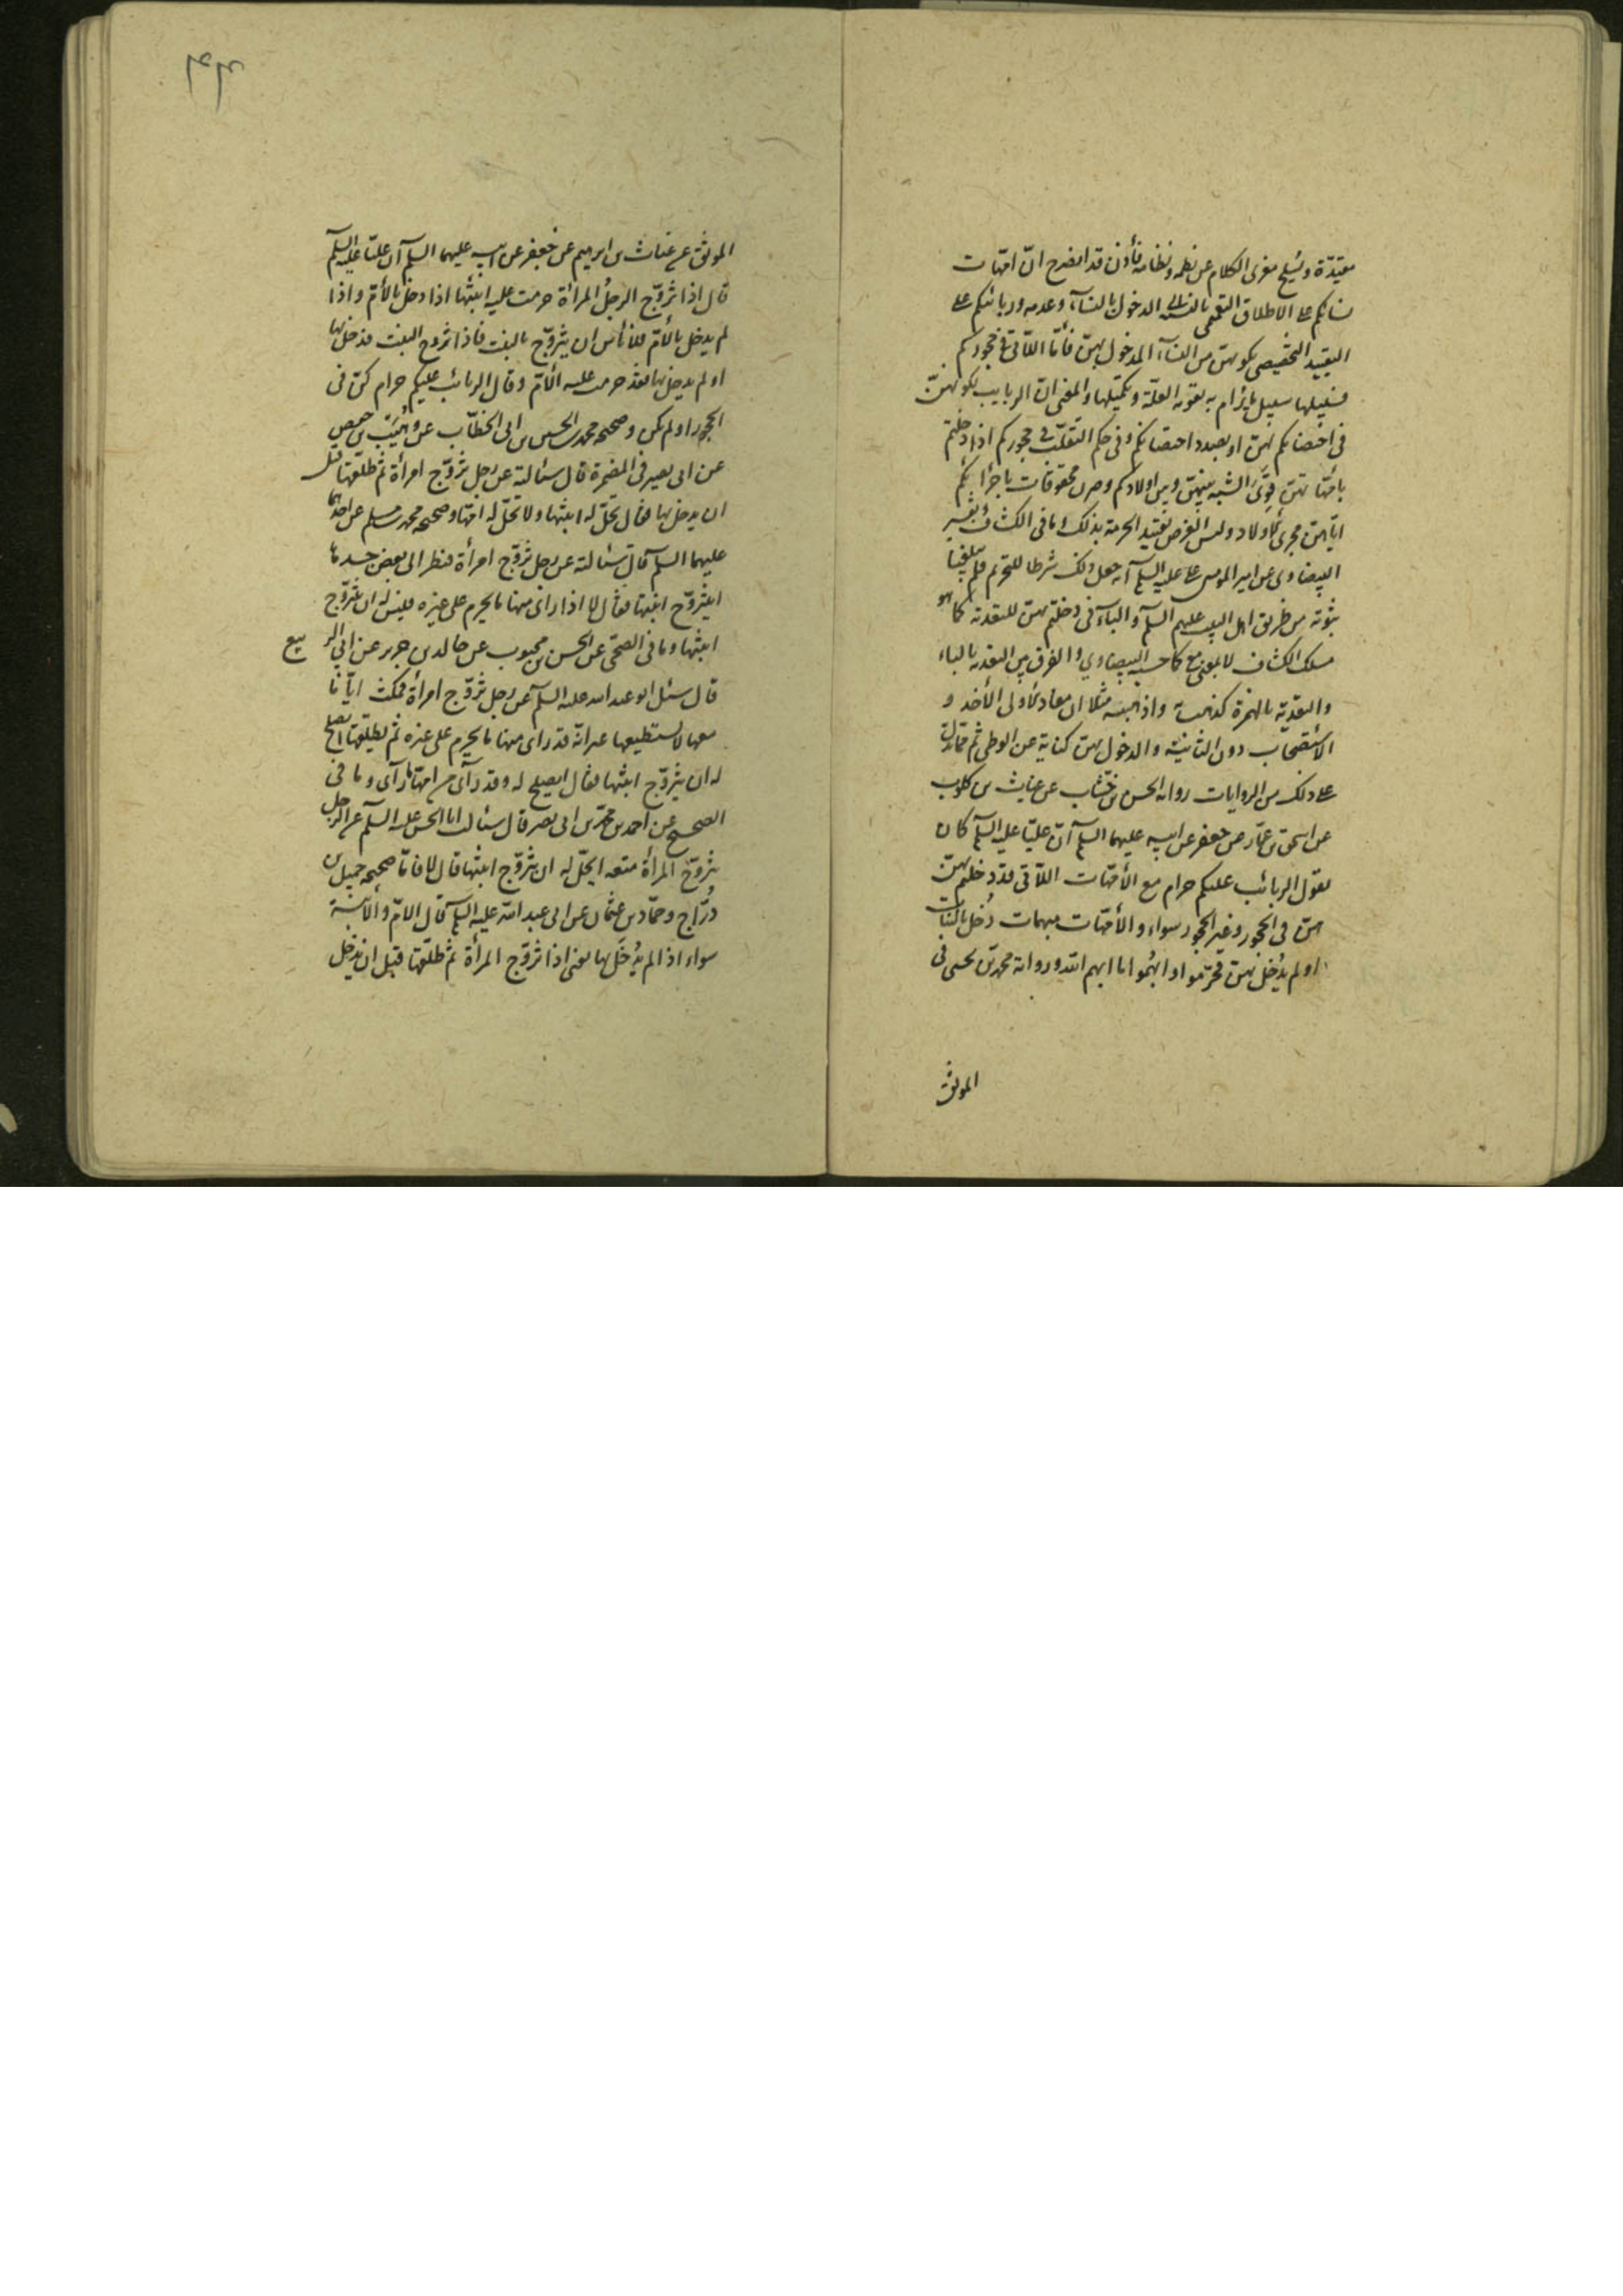 مقيّدة وينسلخ مغزى الكلام عن نظمه ونظامه فأذن قد انصرح انّ امّهات
نسائكم على الاطلاق التعميمى بالنسبة الى الدخول بالنساء وعدمه وربائبكم على
التقييد التخصيصى بكونهنّ من النساء المدخول بهنّ فأمّا اللاتى فى حجوركم
فسبيلها سبيل ما يرام به تقوية العلّة وتكميلها والمعنى انّ الربايب بكونهنّ
فى احتضانكم لهنّ او بصدد احتضانكم وفى حكم التقلّب فى حجوركم اذا دخلتم
بامّهاتهنّ قوىَ الشبه بينهنّ وبين اولادكم وصرن محقوقات باجرائكم
ايّاهنّ مجرى الاولاد وليس الغرض تقييد الحرمة بذلك وما فى الكشاف وتفسير
البيضاوى عن امير المومنين على عليه السلم انه جعل ذلك شرطا للتحريم فلم يبلغنا
ثبوته من طريق اهل البيت عليهم السلم والباء فى دخلتم بهنّ للتعدية كما هو
مسلك الكشاف لا بمعنى مع كما حسبه البيضاوي والفرق بين التعدية بالباء
والتعدية بالهمزة كذهبت به واذهبته مثلا ان مفاد الأولى الأخذ و
الأستصحاب دون الثانية والدخول بهنّ كناية عن الوطى ثم ممّا يدلّ
على ذلك من الروايات رواية الحسن بن خشّاب عن غياث بن كلوب
عن اسحق بن عمّار عن جعفر عن ابيه عليهما السلم انّ عليّا عليه السلم كان
يقول الربائب عليكم حرام مع الأمّهات اللاّتى قد دخلتم بهنّ
هنّ فى الحجور وغير الحجور سواء والأمّهات مبهمات دُخل بالبنات
او لم يُدخل بهنّ فحرّموا وابهُموا ما ابهم الله ورواية محمد بن يحيى فى
الموثق
الموثق عن غياث بن ابرهيم عن جعفر عن ابيه عليهما السلم ان عليّا عليه السلم
قال اذا تزوّج الرجلُ المرأة حرمت عليه ابنتُها اذا دخل بالأمّ واذا
لم يدخل بالأمّ فلا بأس ان يتزوّج بالبنت فاذا تزوج البنت فدخل بها
او لم يدخل بها فقد حرمت عليه الأمّ وقال الربائب عليكم حرام كنّ فى
الحجور او لم يكن وصحيحة محمد بن الحسين بن ابى الخطّاب عن وُهَيب بن حفص
عن ابى بصير فى المضمرة قال سئالته عن رجل تزوّج امرأة ثم طلّقها قبل
ان يدخل بها فقال تحلّ له ابنتها ولا تحلّ له امّها وصحيحة محمد بن مسلم عن احدهما
عليهما السلم قال سئالته عن رجل تزوّج امرأة فنظر الى بعض جسدها
ايتزوّج ابنتها فقال لا اذا راى منها ما يحرم على غيره فليس له ان يتزوّج
ابنتها وما فى الصحّى عن الحسن بن محبوب عن خالد بن جرير عن ابي الربيع
قال سئل ابو عبد الله عليه السلم عن رجل تزوّج امرأة فمكث ايّاما
معها لا يستطيعها غير انّه قد راى منها ما يحرم على غيره ثم يطلّقها ايصلح
له ان يتزوّج ابنتها فقال ايصلح له وقد رآى من امّها ما رآى وما فى
الصحيح عن احمد بن محمّد بن ابى نصر قال سئالت ابا الحسن عليه السلم عن الرجل
يتزوّج المرأة متعة ايحلّ له ان يتزوّج ابنتها قال لا فامّا صحيحة جميل بن
دُرّاج وحمّاد بن عثمان عن ابى عبد الله عليه السلم قال الامّ والأبنة
سواء اذا لم يُدخَل بها يعنى اذا تزوّج المرأة ثم طلّقها قبل ان يدخل